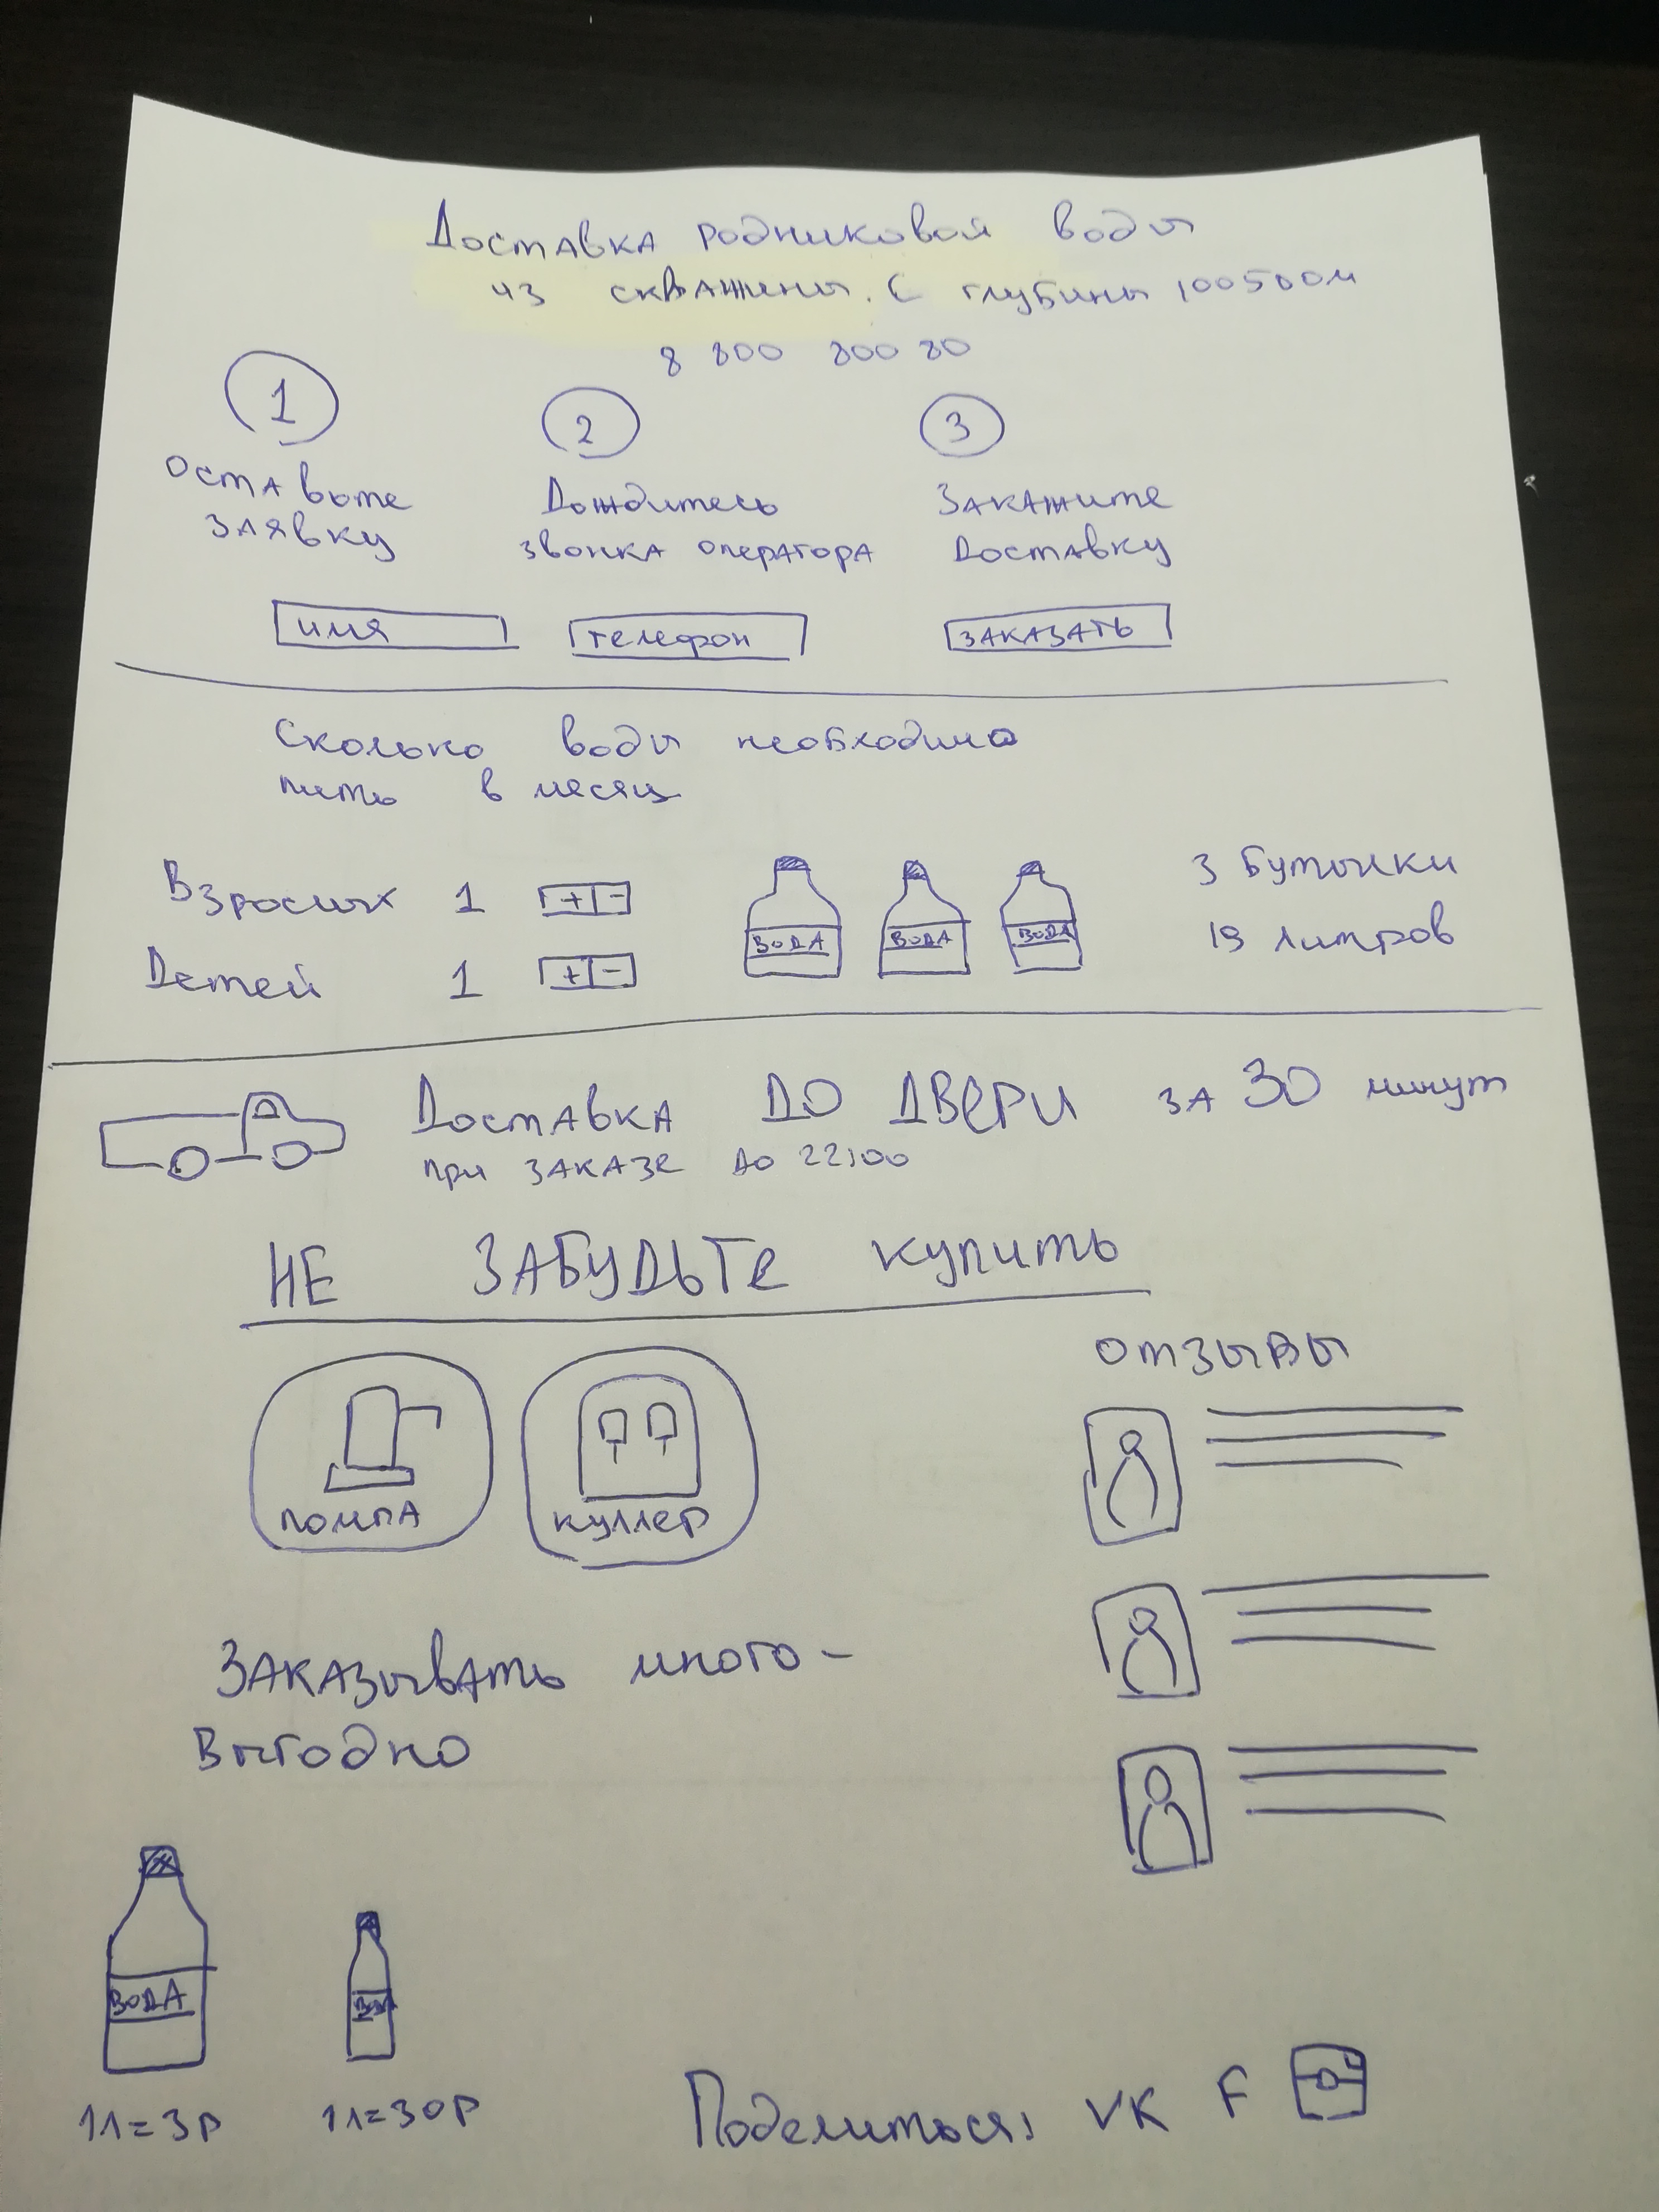 Доставка родниковой воды
из скважины. С глубины 100500м
8 800 800 80
1
Оставьте
заявку
2
Дождитесь
звонка оператора
3
Закажите
доставку
имя
телефон
ЗАКАЗАТЬ
Сколько воды необходимо
пить в месяц
Взрослых 1 + -
Детей 1 + -
ВОДА
ВОДА
ВОДА
3 бутылки
19 литров
Доставка ДО ДВЕРИ за 30 минут
при заказе до 22:00
НЕ ЗАБУДЬТЕ купить
помпа
куллер
отзывы
Заказывать много -
выгодно
ВОДА
ВОДА
1л=3р
1л=30р
Поделиться: VK F